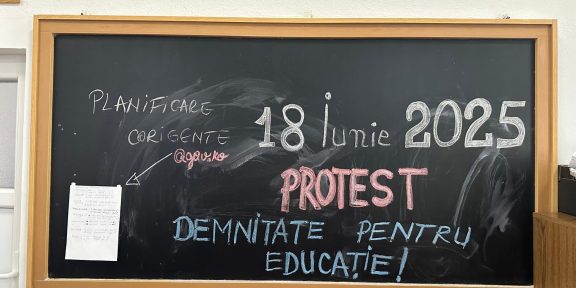 PLANIFICARE
CORIGENTE
@gov.ro
18 Iunie 2025
PROTEST
DEMNITATE PENTRU
EDUCAȚIE!